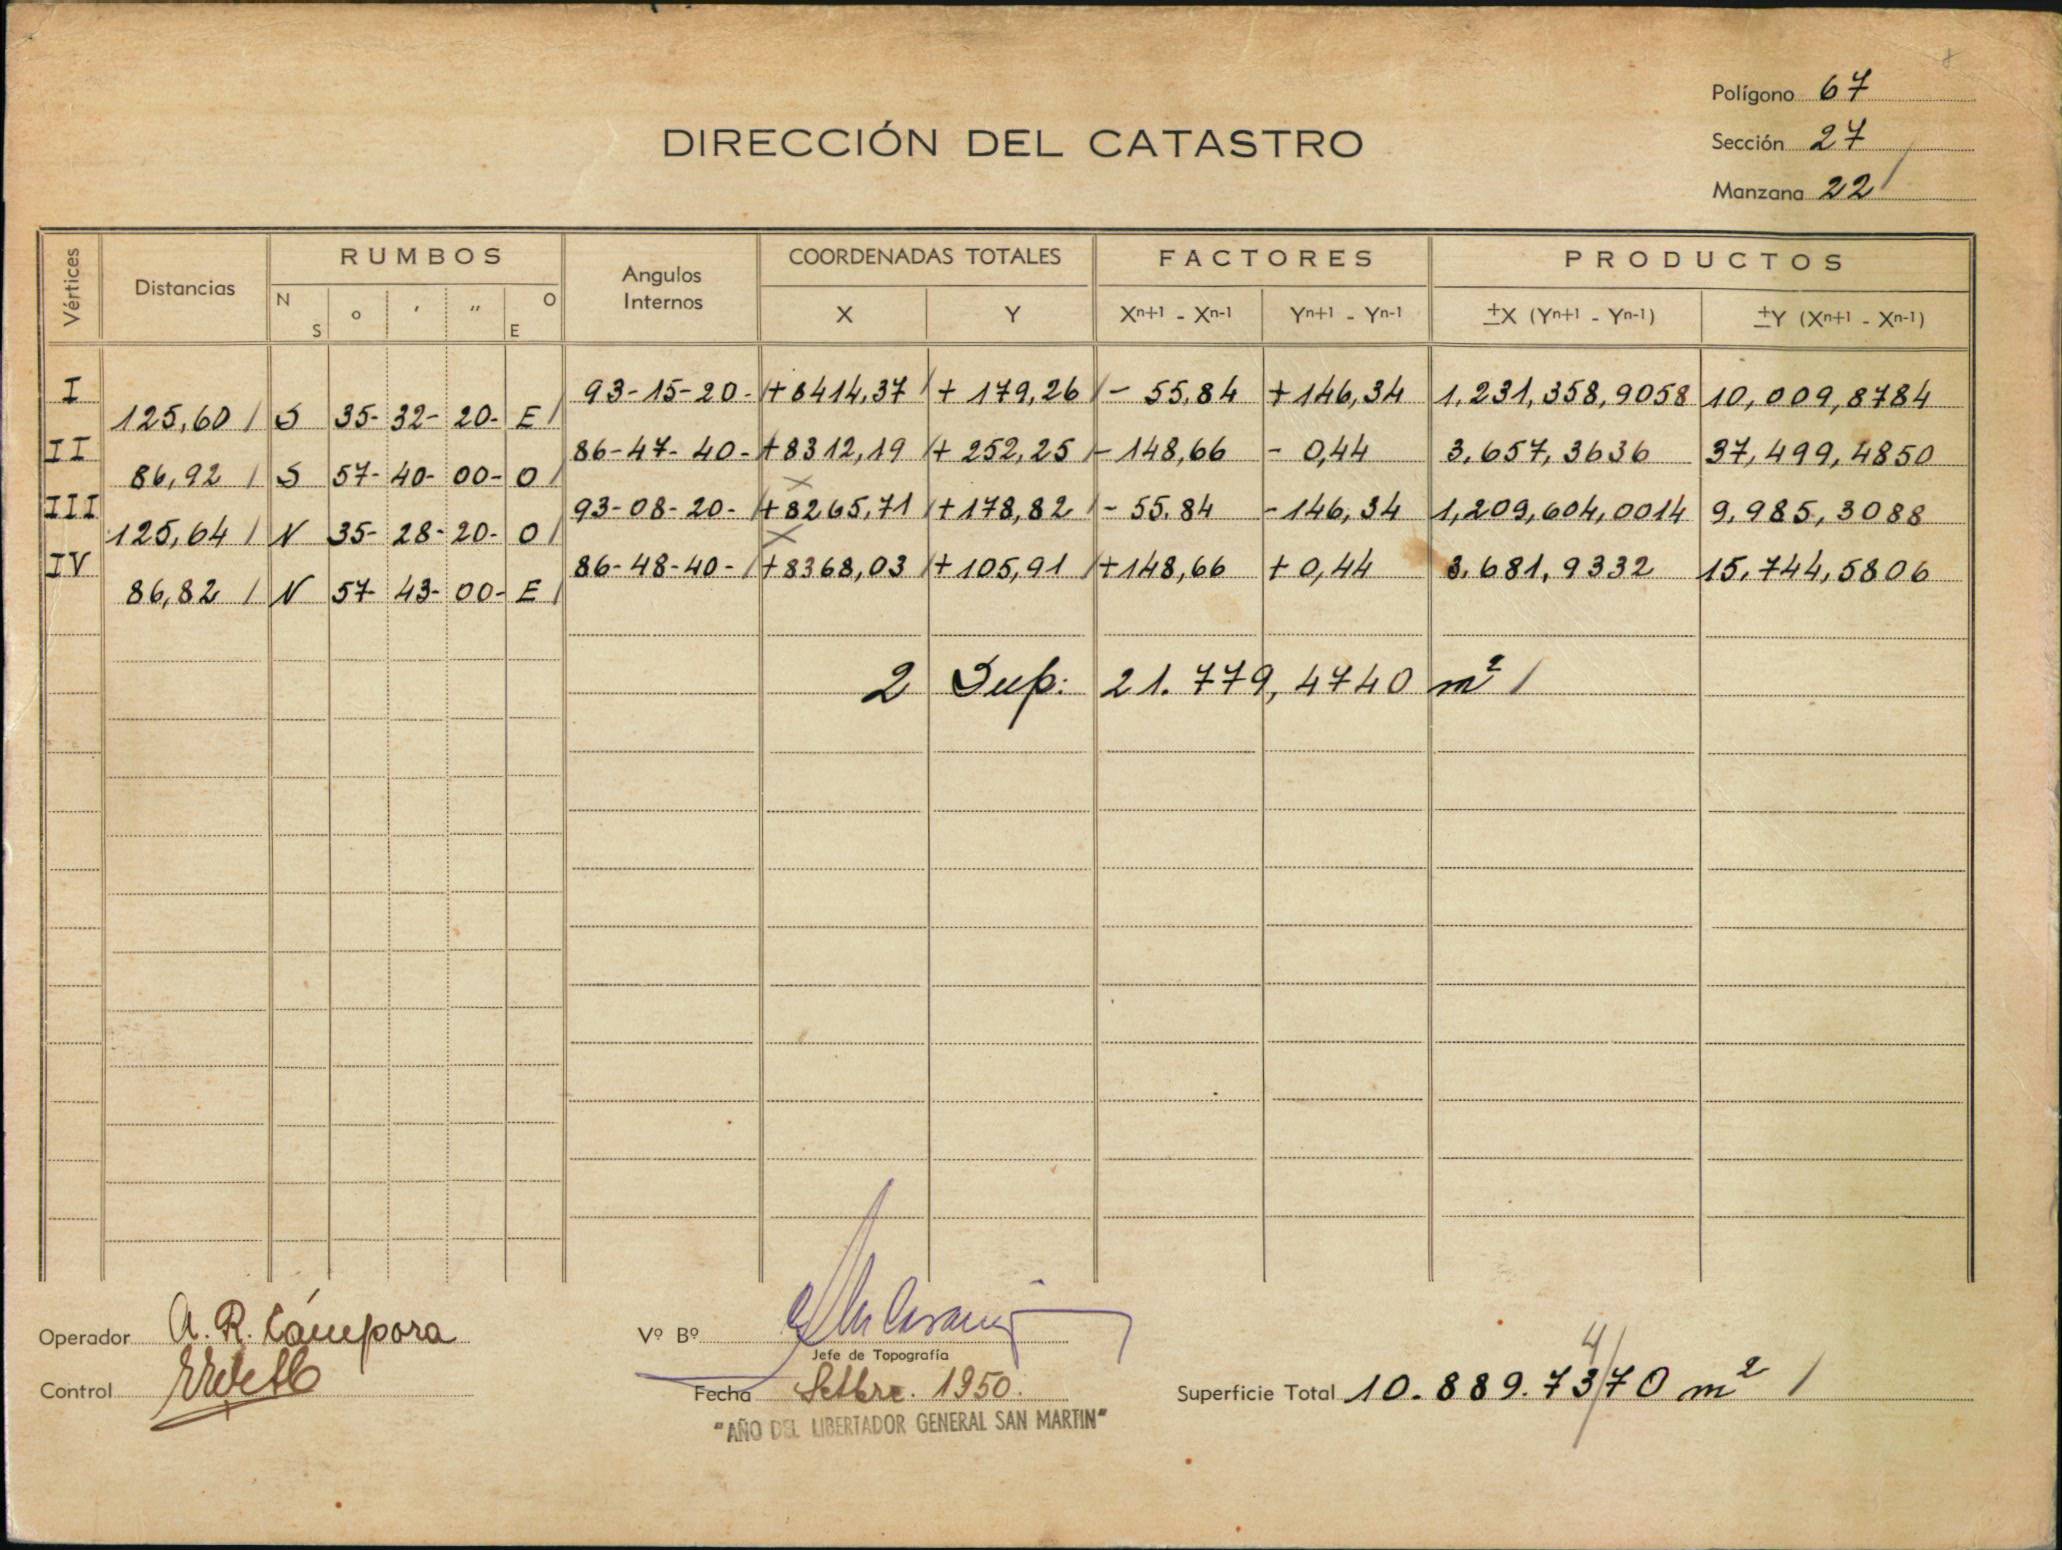 Polígono 67
DIRECCIÓN DEL CATASTRO
Sección 27
Manzana 22 /
Vértices Distancias RUMBOS Angulos Internos COORDENADAS TOTALES FACTORES PRODUCTOS
N S ° ' " O E X Y Xⁿ⁺¹ - Xⁿ⁻¹ Yⁿ⁺¹ - Yⁿ⁻¹ ±X (Yⁿ⁺¹ - Yⁿ⁻¹) ±Y (Xⁿ⁺¹ - Xⁿ⁻¹)
I 93-15-20- /+8414,37 /+ 179,26 /- 55,84 +146,34 1,231,358,9058 10,009,8784
125,60 / S 35- 32- 20- E /
II 86-47-40- /+8312,19 /+ 252,25 /- 148,66 - 0,44 3.657,3636 37,499,4850
86,92 / S 57- 40- 00- O /
III 93-08-20- /+8265,71 /+178,82 /- 55.84 -146,34 1,209,604,0014 9.985,3088
125,64 / N 35- 28- 20- O /
IV 86-48-40- /+8368,03 /+105,91 /+148,66 + 0,44 3.681,9332 15.744,5806
86,82 / N 57- 43- 00- E /
2 Sup: 21.779,4740 m² /
Operador A. R. Cámpora
Vº Bº
Jefe de Topografía
Control
Fecha Setbre. 1950.
Superficie Total 10.889.7370 m² /
4/
"AÑO DEL LIBERTADOR GENERAL SAN MARTIN"